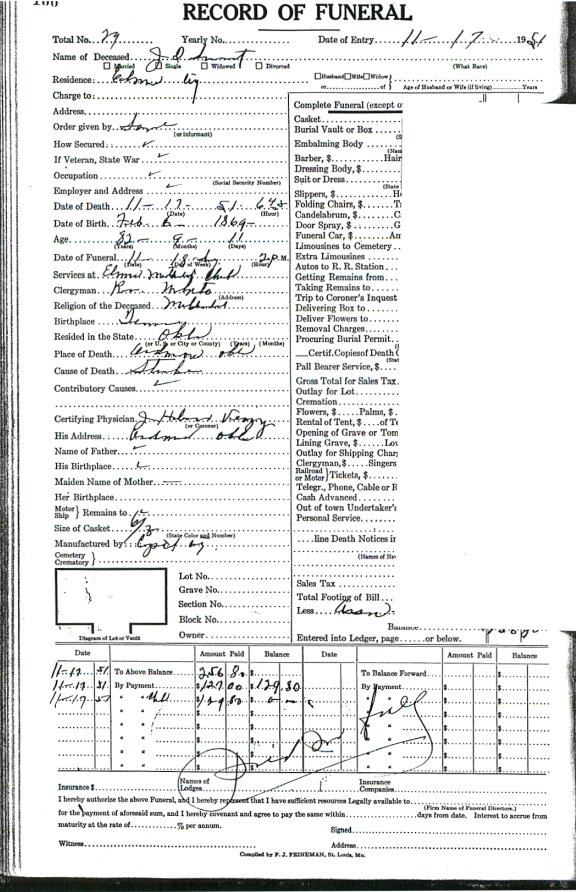 RECORD OF FUNERAL
Total No. 29 Yearly No. Date of Entry 11- 17 1951
Name of Deceased J. D.
Married Single Widowed Divorced (What Race)
Residence: City Husband Wife Widow
or of Age of Husband or Wife (if living) Years
Charge to:
Address
Order given by
(or informant)
How Secured
If Veteran, State War
Occupation
(Social Security Number)
Employer and Address
Date of Death 11 - 17 - 51
(Date) (Hour)
Date of Birth Feb. 6 - 1869
Age 82 - 9 - 11
(Years) (Months) (Days)
Date of Funeral 11 18 2 P.M.
(Date) (Day of Week) (Hour)
Services at
Clergyman Rev.
(Address)
Religion of the Deceased Methodist
Birthplace Tenn
Resided in the State Okla
(or U. S. or City or County) (Years) (Months)
Place of Death Ardmore Okl
Cause of Death Stroke
Contributory Causes
Certifying Physician J.
(or Coroner)
His Address Ardmore Okla
Name of Father
His Birthplace
Maiden Name of Mother
Her Birthplace
Motor Ship } Remains to
Size of Casket 6/3
(State Color and Number)
Manufactured by
Cemetery Crematory }
Diagram of Lot or Vault
Lot No.
Grave No.
Section No.
Block No.
Owner
Complete Funeral (except o
Casket
Burial Vault or Box
Embalming Body
Barber, $ Hair
Dressing Body, $
Suit or Dress
Slippers, $ H
Folding Chairs, $ T
Candelabrum, $ C
Door Spray, $ G
Funeral Car, $ Am
Limousines to Cemetery
Extra Limousines
Autos to R. R. Station
Getting Remains from
Taking Remains to
Trip to Coroner's Inquest
Delivering Box to
Deliver Flowers to
Removal Charges
Procuring Burial Permit
Certif. Copies of Death C
Pall Bearer Service, $
Gross Total for Sales Tax
Outlay for Lot
Cremation
Flowers, $ Palms, $
Rental of Tent, $ of Te
Opening of Grave or Tom
Lining Grave, $ Lo
Outlay for Shipping Char
Clergyman, $ Singers
Railroad or Motor } Tickets, $
Telegr., Phone, Cable or R
Cash Advanced
Out of town Undertaker's
Personal Service
line Death Notices in
(Names of Ne
Sales Tax
Total Footing of Bill
Less Assn
Balance
Entered into Ledger, page or below.
Date Amount Paid Balance Date Amount Paid Balance
11-17 51 To Above Balance 256 80 To Balance Forward
11-17 51 By Payment $127.00 $129.80 By Payment full
11-17 51 " " $129 80
Insurance $ Names of Lodges Insurance Companies
I hereby authorize the above Funeral, and I hereby represent that I have sufficient resources Legally available to
(Firm Name of Funeral Directors.)
for the payment of aforesaid sum, and I hereby covenant and agree to pay the same within days from date. Interest to accrue from
maturity at the rate of % per annum. Signed
Witness Address
Compiled by F. J. FEINEMAN, St. Louis, Mo.